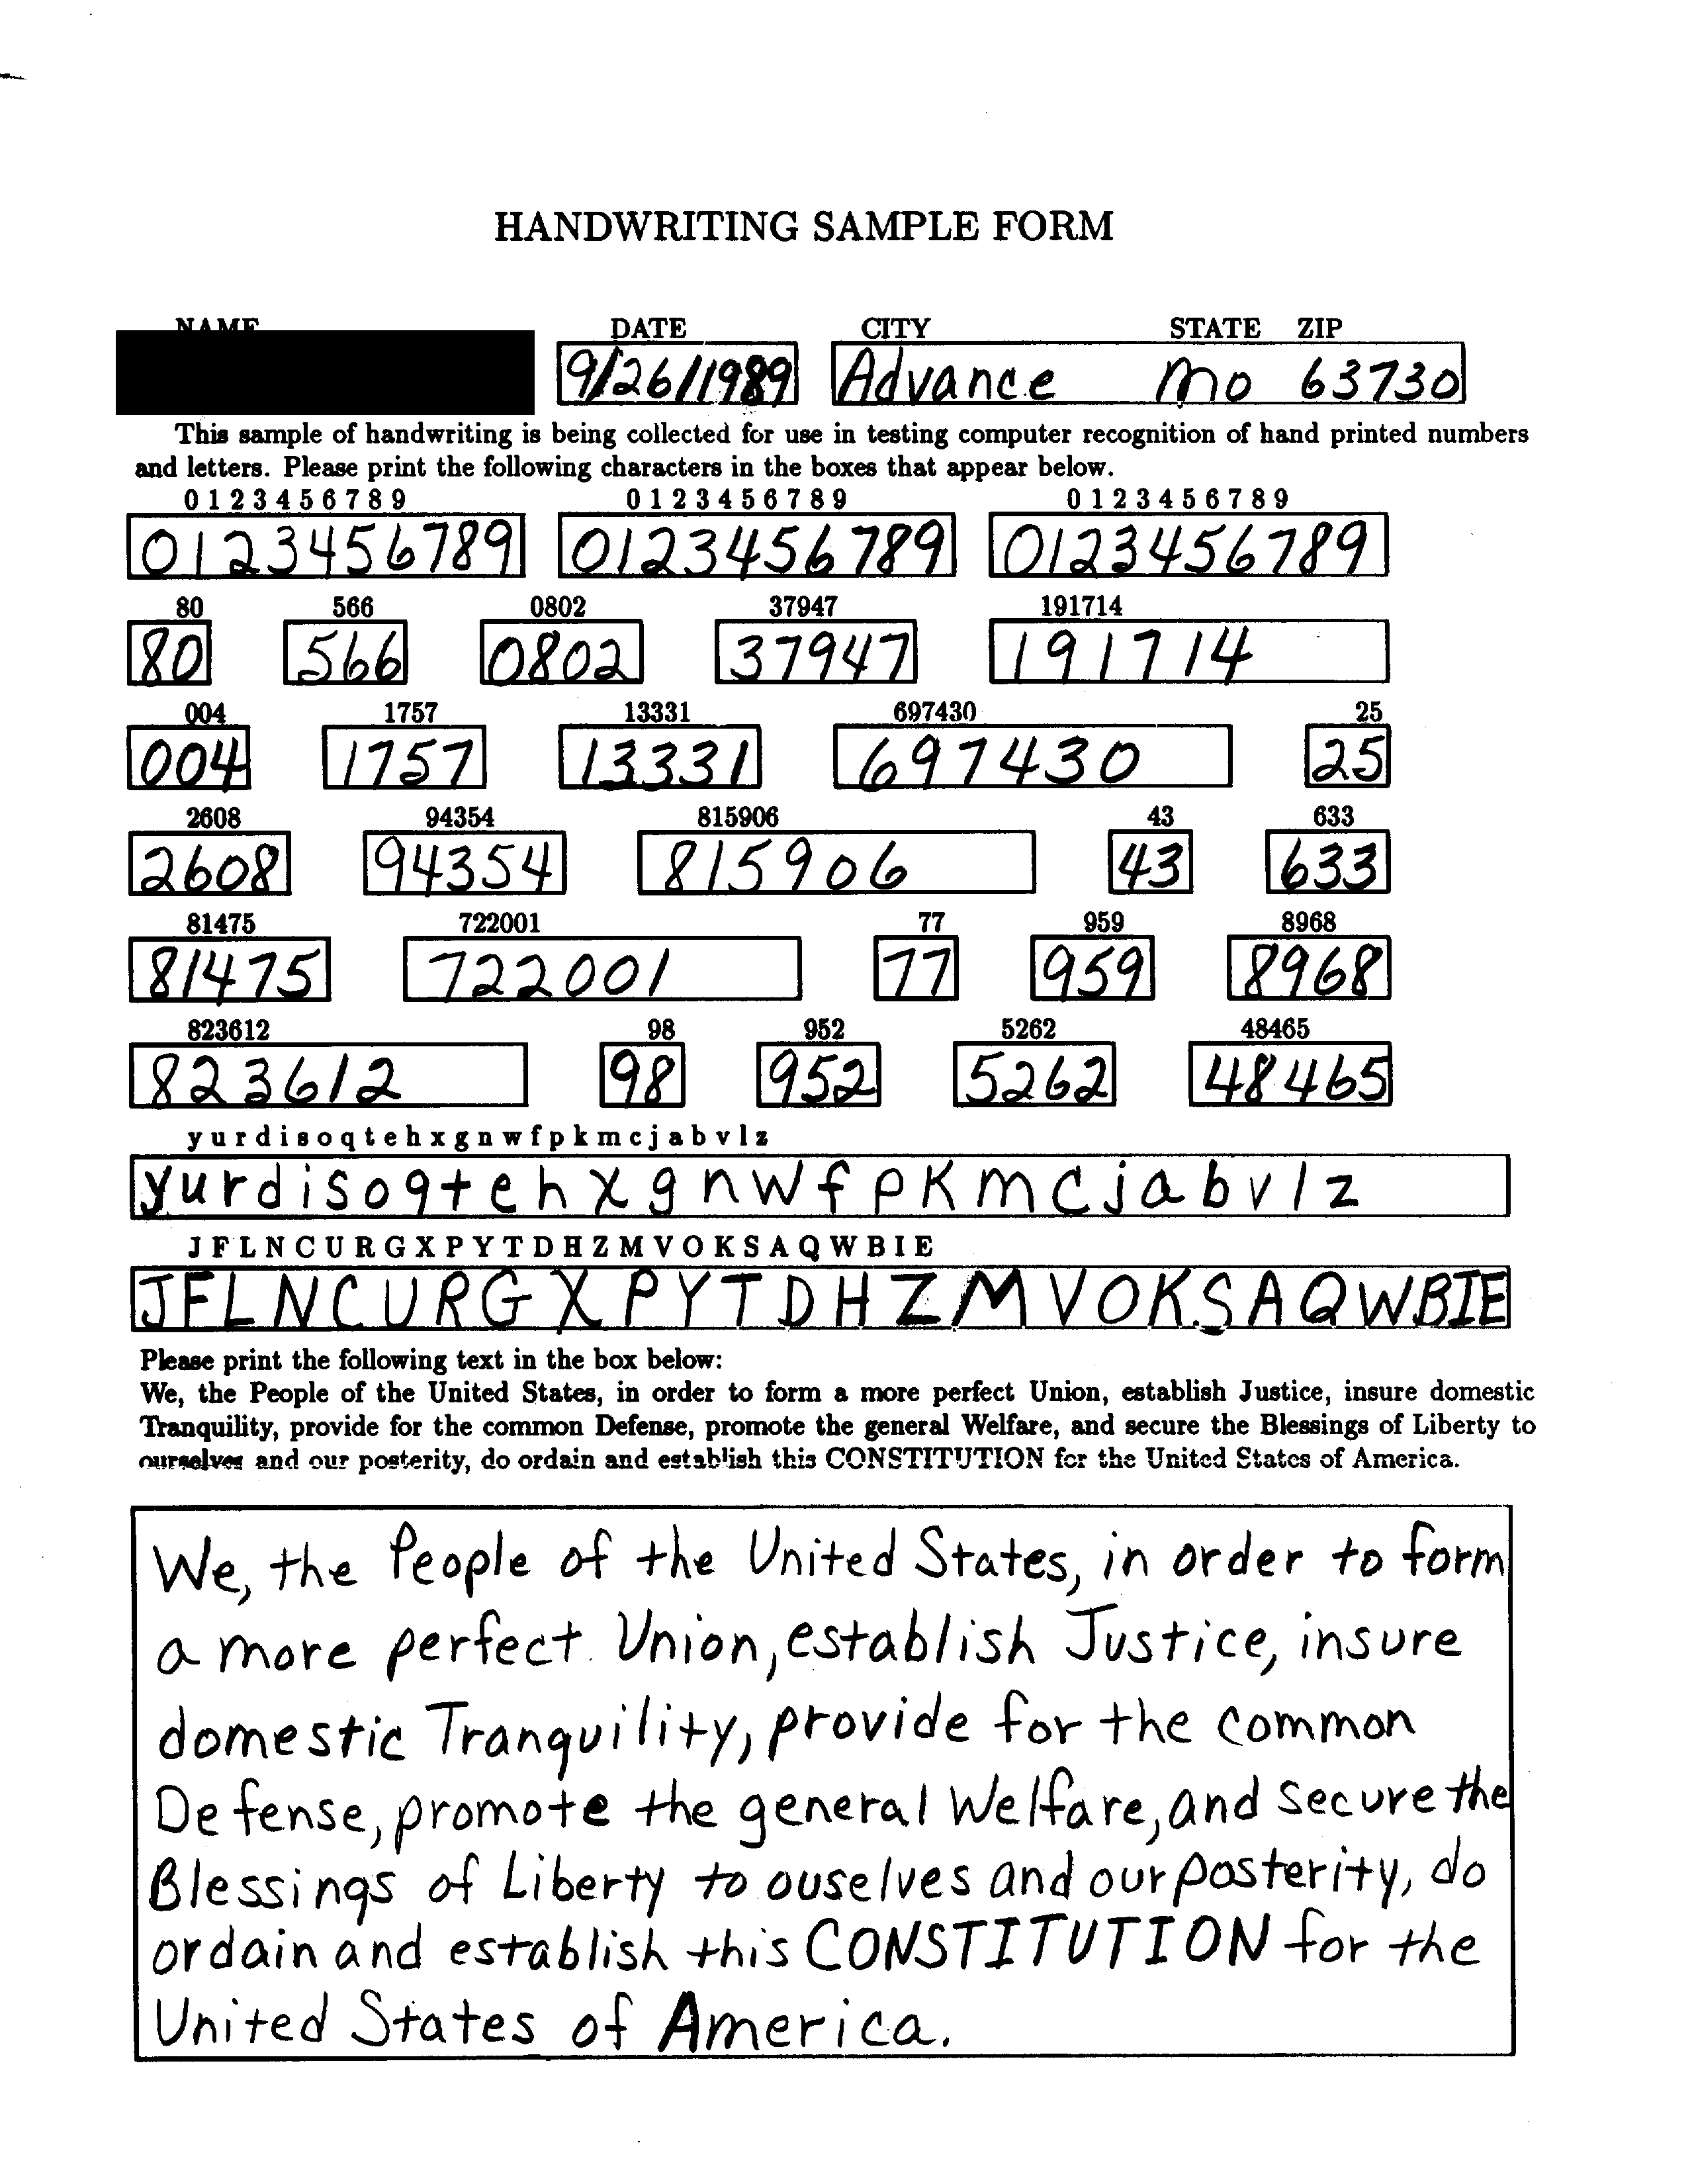 HANDWRITING SAMPLE FORM
NAME DATE CITY STATE ZIP
9/26/1989 Advance Mo 63730
This sample of handwriting is being collected for use in testing computer recognition of hand printed numbers
and letters. Please print the following characters in the boxes that appear below.
0 1 2 3 4 5 6 7 8 9 0 1 2 3 4 5 6 7 8 9 0 1 2 3 4 5 6 7 8 9
0123456789 0123456789 0123456789
80 566 0802 37947 191714
80 566 0802 37947 191714
004 1757 13331 697430 25
004 1757 13331 697430 25
2608 94354 815906 43 633
2608 94354 815906 43 633
81475 722001 77 959 8968
81475 722001 77 959 8968
823612 98 952 5262 48465
823612 98 952 5262 48465
y u r d i s o q t e h x g n w f p k m c j a b v l z
yurdisoqtehxgnwfpKmcjabvlz
J F L N C U R G X P Y T D H Z M V O K S A Q W B I E
JFLNCURGXPYTDHZMVOKSAQWBIE
Please print the following text in the box below:
We, the People of the United States, in order to form a more perfect Union, establish Justice, insure domestic
Tranquility, provide for the common Defense, promote the general Welfare, and secure the Blessings of Liberty to
ourselves and our posterity, do ordain and establish this CONSTITUTION for the United States of America.
We, the People of the United States, in order to form
a more perfect Union, establish Justice, insure
domestic Tranquility, provide for the common
Defense, promote the general Welfare, and secure the
Blessings of Liberty to ouselves and our posterity, do
ordain and establish this CONSTITUTION for the
United States of America.